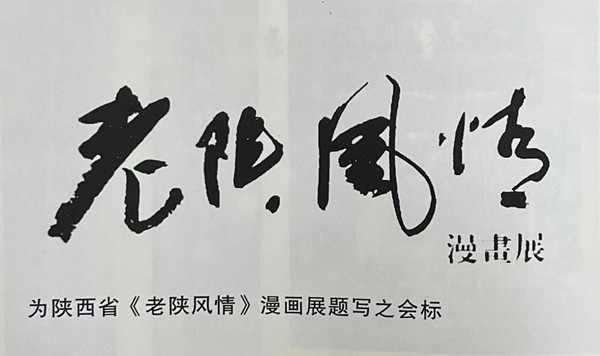 老陕风情
漫畫展
为陕西省《老陕风情》漫画展题写之会标